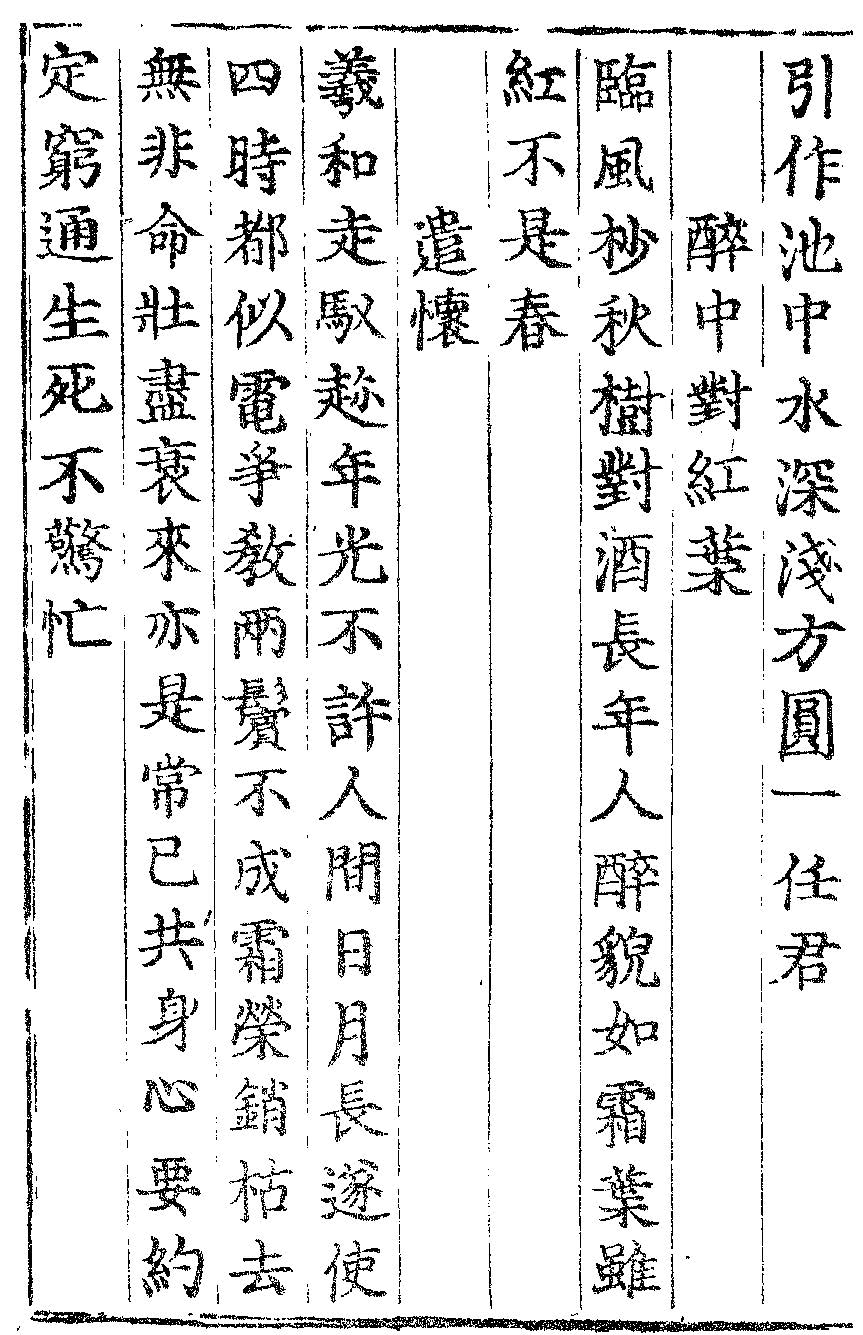 引作池中水深淺方圓一任君
醉中對紅葉
臨風杪秋樹對酒長年人醉貌如霜葉雖
紅不是春
遣懷
羲和走馭趂年光不許人間日月長遂使
四時都似電爭敎兩鬢不成霜榮銷枯去
無非命壯盡衰來亦是常已共身心要約
定窮通生死不驚忙